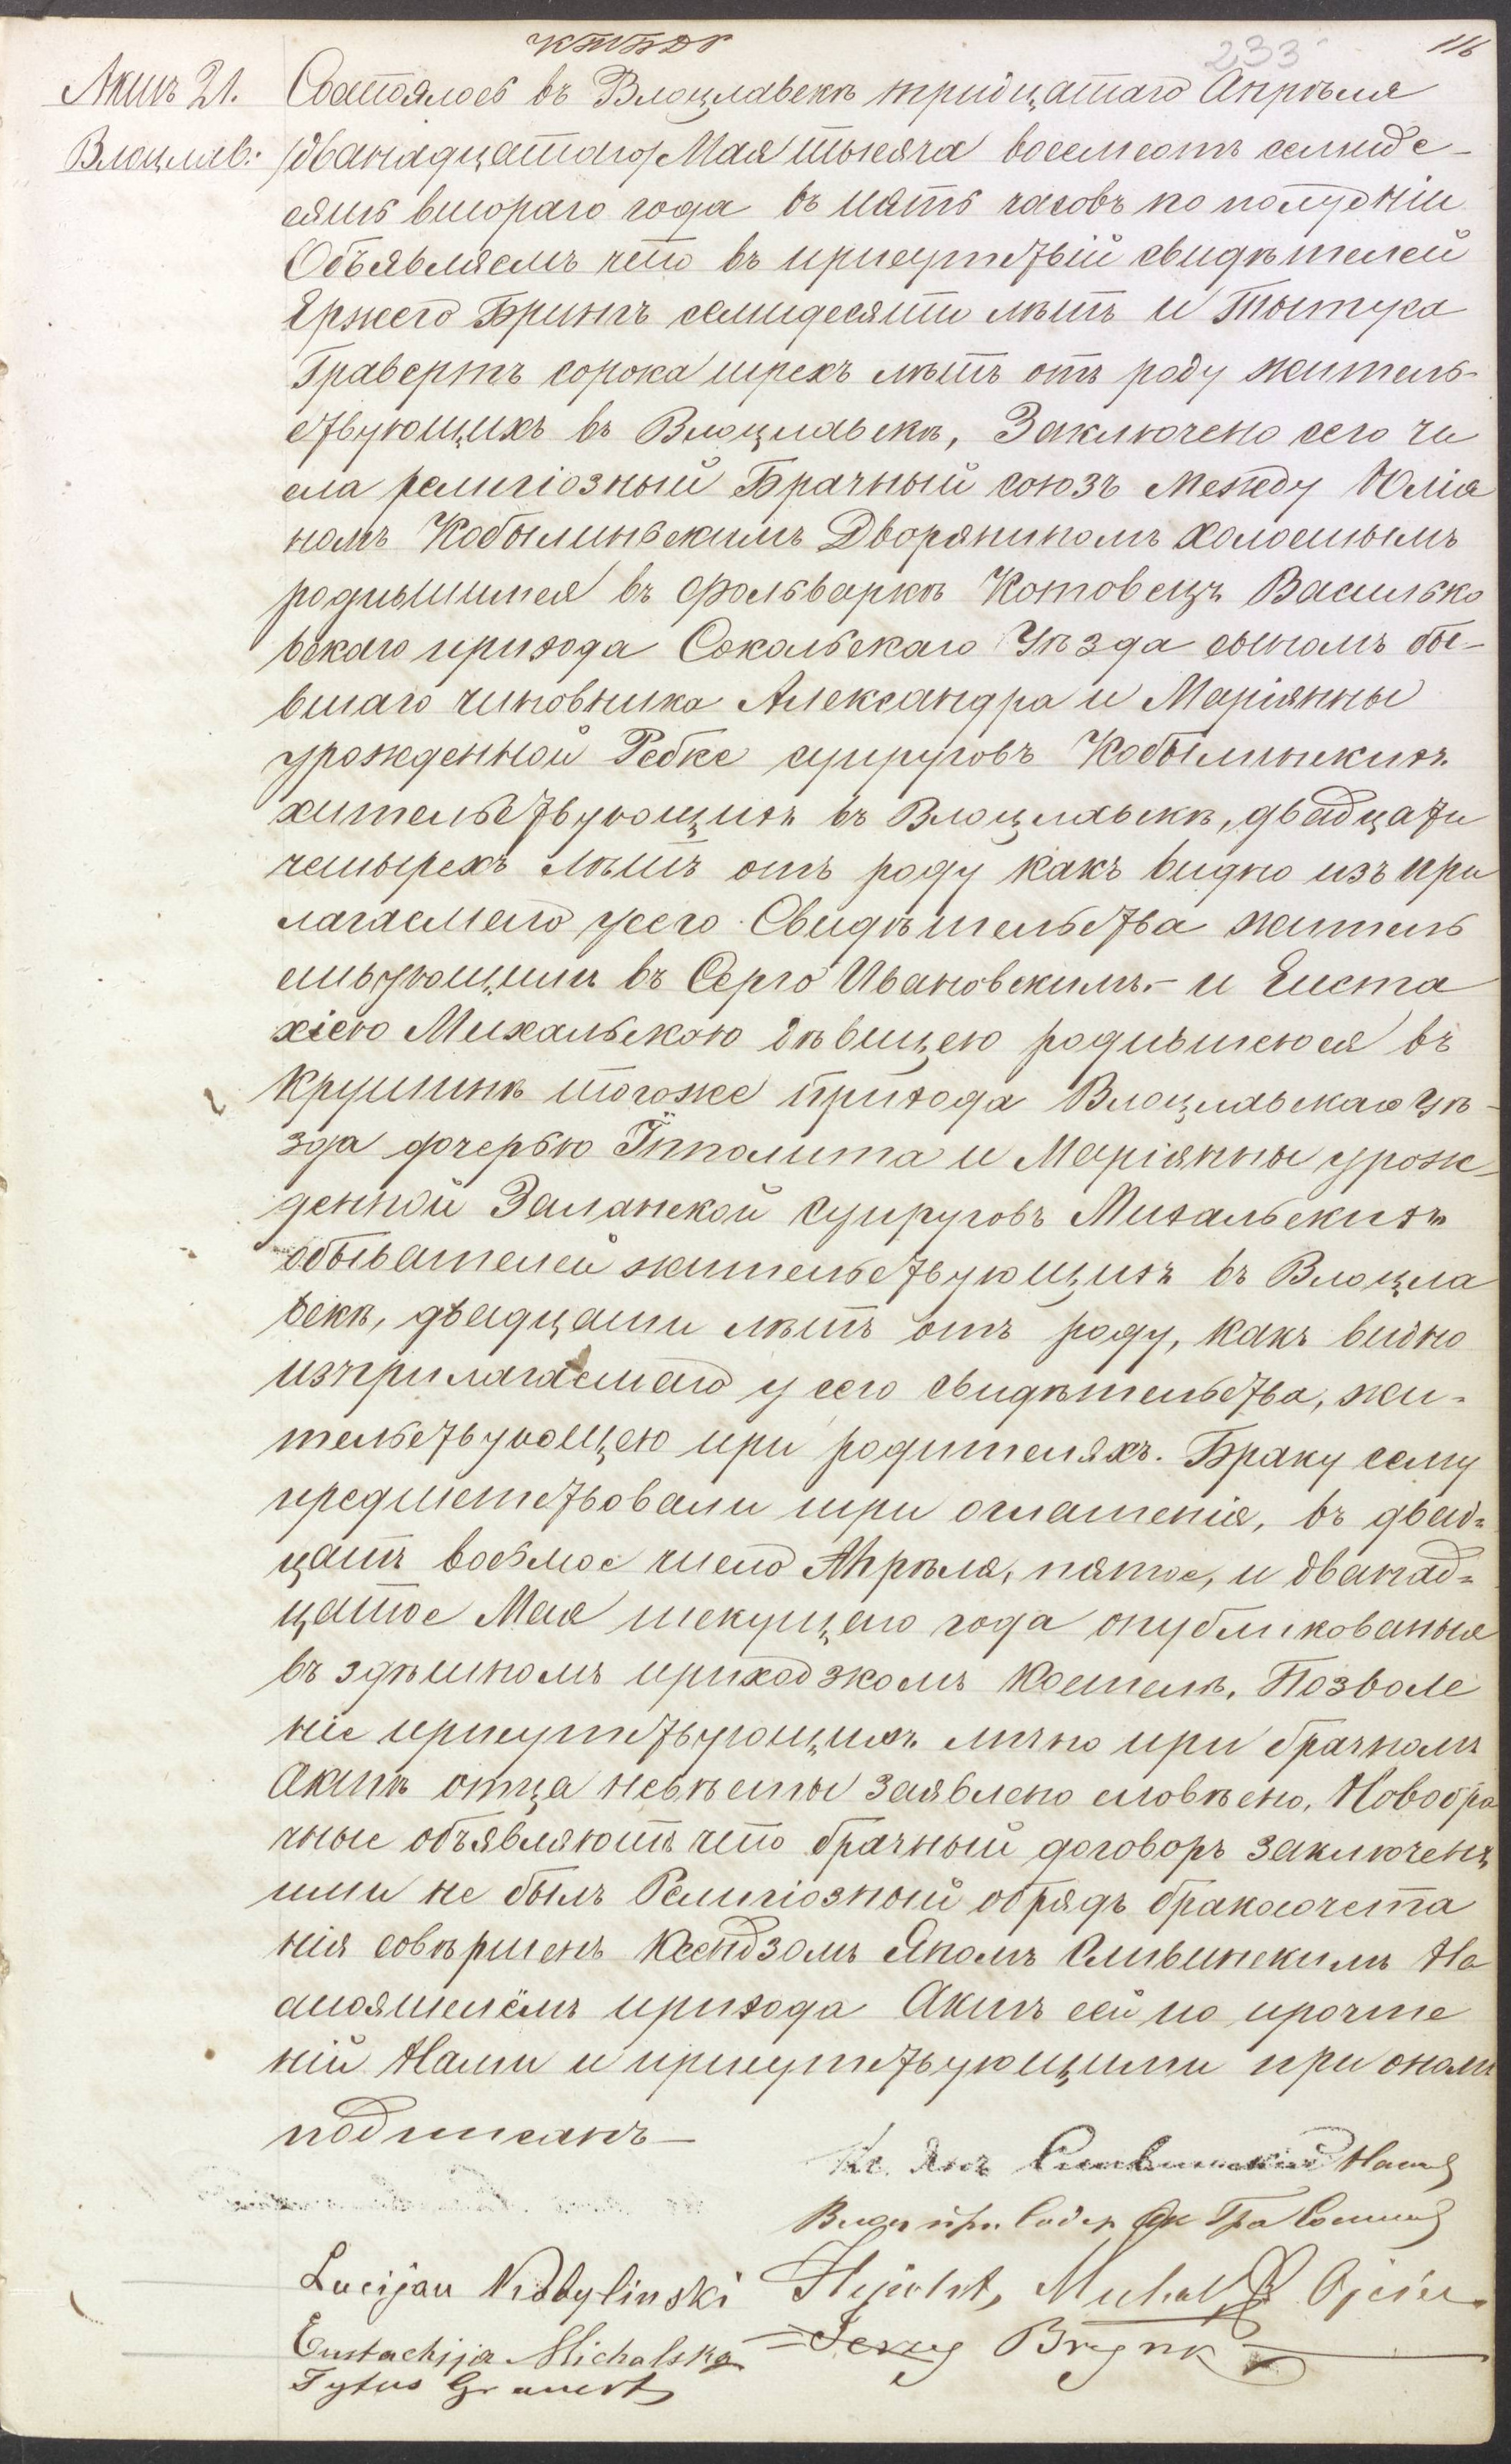 116
233
Актъ 21.
Влоцлав:
Состоялось въ Влоцлавекѣ тридцатаго Апрѣля
/дванадцатаго/ Мая тысяча восемсотъ семидес-
еятъ втораго года въ пять часовъ по полудніи
Объявляемъ что въ присутствій свидѣтелей
Ержего Бринкъ семидесяти лѣтъ и Тытуса
Гравертъ сорока трехъ лѣтъ отъ роду житель-
ствующихъ въ Влоцлавекѣ, Заключено сего чи
сла религіозный Брачный союзъ между Юлія
номъ Кобылиньскимъ Дворяниномъ холостымъ
родившимся въ фольваркѣ Котовецъ Василько
вскаго прихода Сокольскаго Уѣзда сыномъ бы-
вшаго чиновника Александра и Маріянны
урожденной Ребке супруговъ Кобылинскихъ
жительствующихъ въ Влоцлавекѣ, двадцати
четырехъ лѣтъ отъ роду какъ видно изъ при
лагаемаго у сего Свидѣтельства житель
ствующимъ въ Серго Ивановскимъ.- и Еиста
хіею Михальскою дѣвицею родившеюся въ
Крушинѣ тогоже прихода Влоцлавскаго Уѣ-
зда дочерью Ипполита и Маріянны урож
денной Заланской супруговъ Михальскихъ
обывателей жительствующихъ въ Влоцла
векѣ, двадцати лѣтъ отъ роду, какъ видно
изъ прилагаемаго у сего свидѣтельства, жи-
тельствующею при родителяхъ. Браку сему
предшествовали три оглашенія, въ двад=
цать восьмое число Апрѣля, пятое, и двaнад=
цатое Мая текущаго года опубликованыя
въ здѣшномъ приходзкомъ костелѣ. Позволе
ніе присутствующихъ лично при брачномъ
Актѣ отца невѣсты заявлено словѣсно, Новобра
чные объявляютъ что брачный договоръ заключенъ
ими не былъ Религіозный обрядъ бракосочета
нія совѣршенъ Ксендзомъ Яномъ Сливинскимъ На
стоятелёмъ прихода Актъ сей по прочте
ній Нами и присутствующими при ономъ
подписанъ—
Кс. Янъ Сливинскій Наст
Lucijan Kobylinski
Eustachija Michalska
Tytus Grauert
Ojciec
Jerzy Brynk